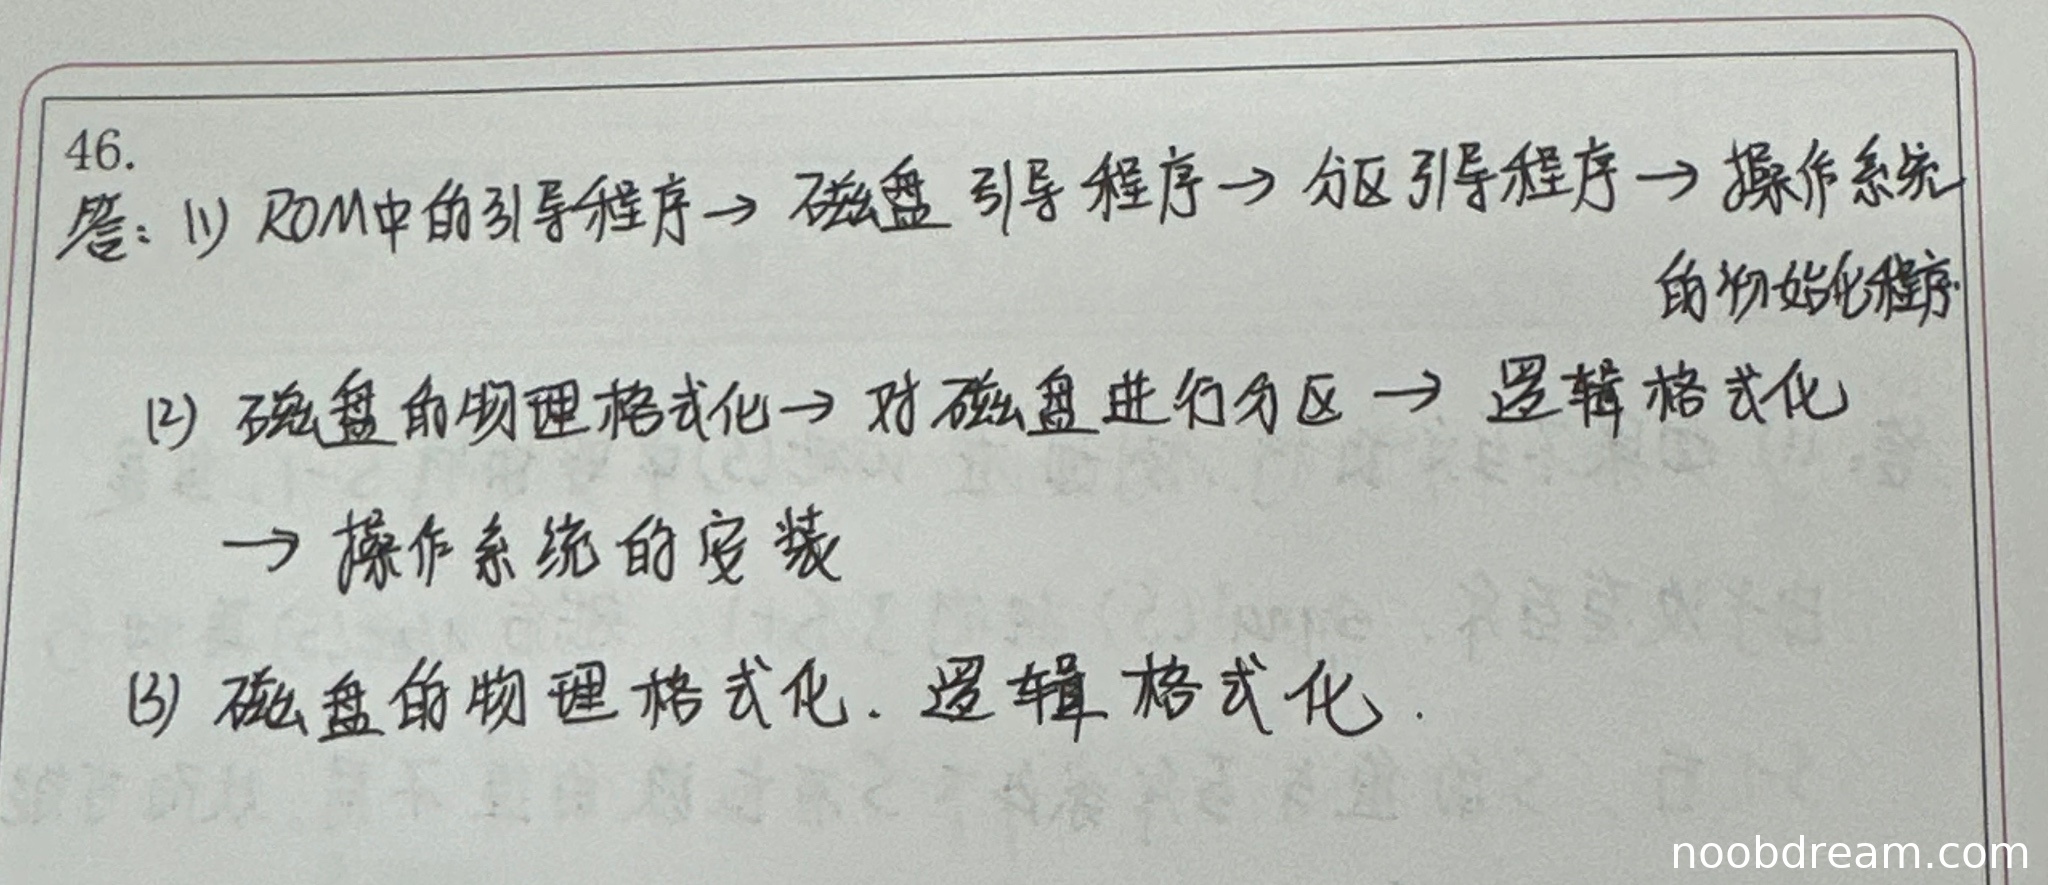 46.
答：(1) ROM中的引导程序→磁盘引导程序→分区引导程序→操作系统
的初始化程序.
(2) 磁盘的物理格式化→对磁盘进行分区→逻辑格式化
→操作系统的安装
(3) 磁盘的物理格式化.逻辑格式化.
noobdream.com